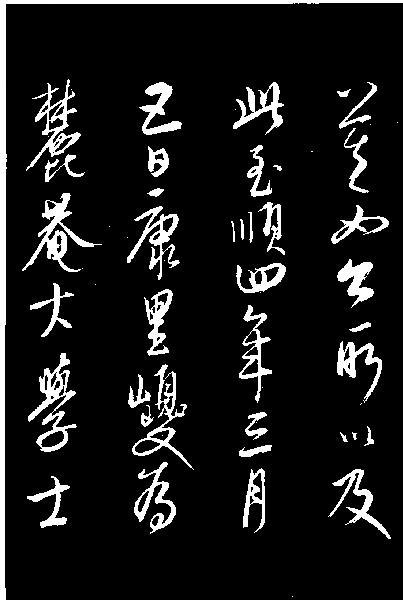 莫如公所以及
此至順四年三月
五日康里巎為
麓菴大學士